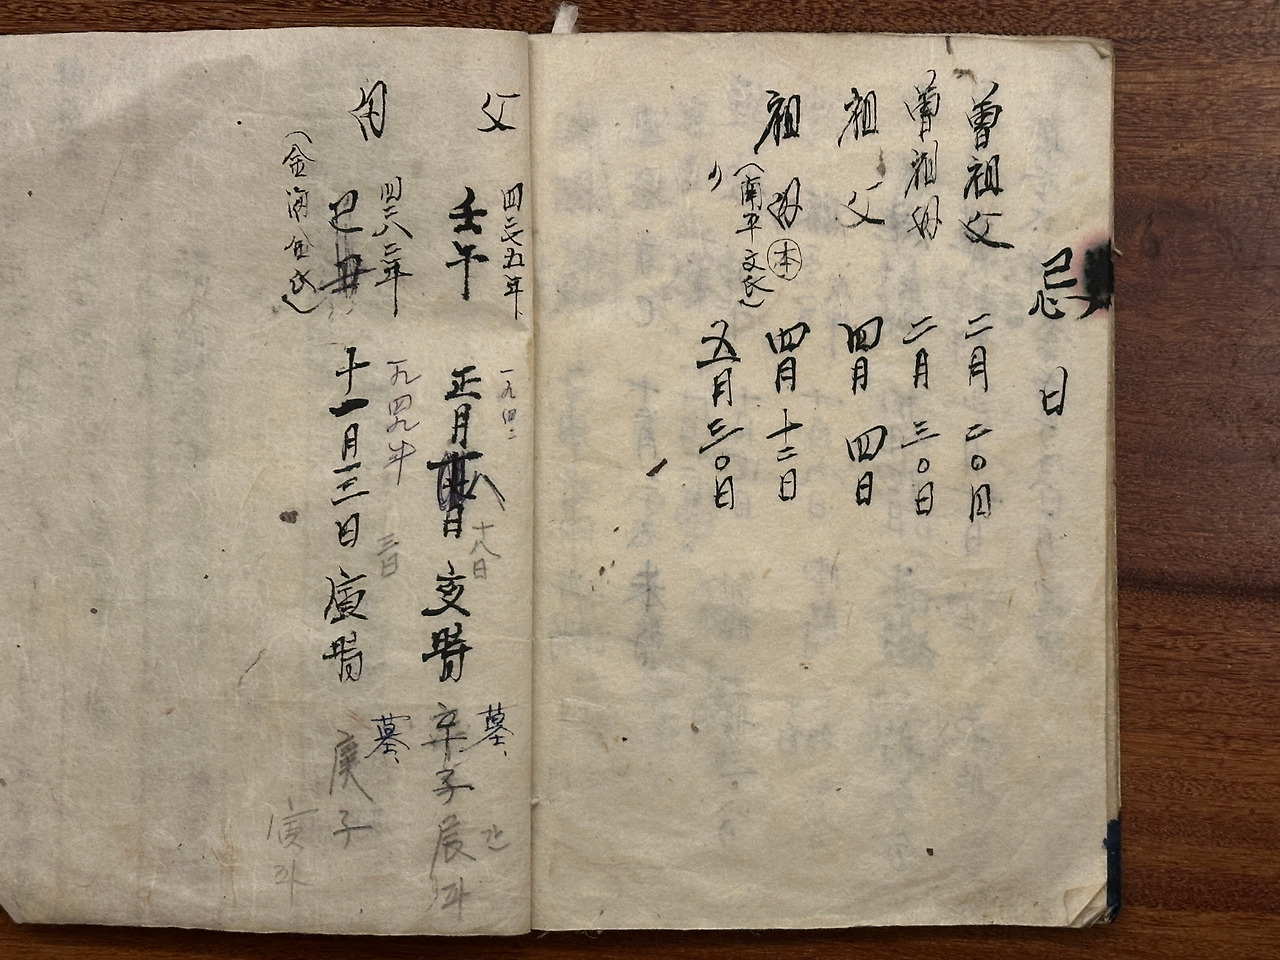 忌日
曾祖父 二月二〇日
曾祖母 二月三〇日
祖父 四月四日
祖母 ㊍ 四月十二日
(南平文氏)
〃 五月三〇日
四二七五年 一九四二 十八日 墓
父 壬午 正月 日 亥時 辛子 辰坐
四二八二年 一九四九年 三日 墓
母 己丑 十一月三日 寅時 庚子
(金海金氏) 寅坐